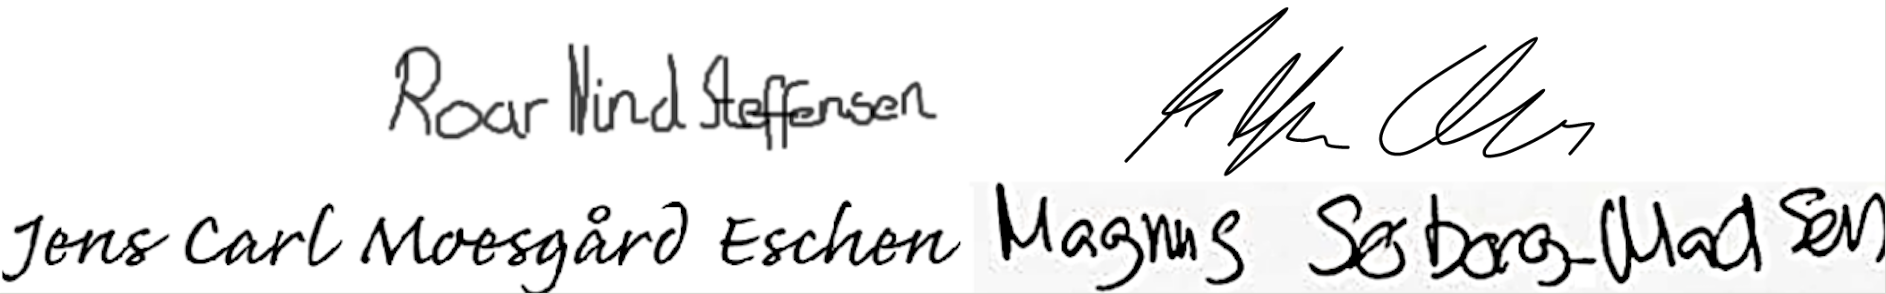 Roar Wind Steffensen
Jens Carl Moesgård Eschen Magnus Søborg-Madsen